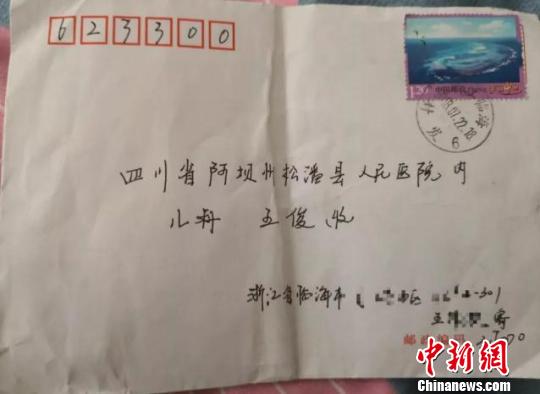 623300
中国邮政 CHINA
四川省阿坝州松潘县人民医院内
儿科 王俊收
浙江省临海市 区 -301
王 寄
邮政编码
中新网
Chinanews.com